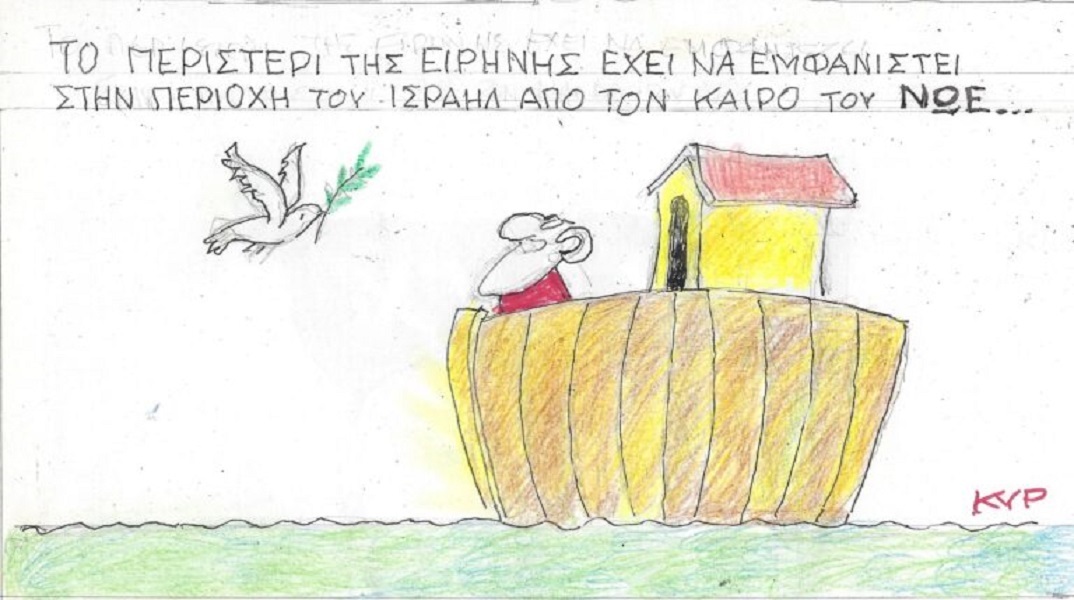 ΤΟ ΠΕΡΙΣΤΕΡΙ ΤΗΣ ΕΙΡΗΝΗΣ ΕΧΕΙ ΝΑ ΕΜΦΑΝΙΣΤΕΙ
ΣΤΗΝ ΠΕΡΙΟΧΗ ΤΟΥ ΙΣΡΑΗΛ ΑΠΟ ΤΟΝ ΚΑΙΡΟ ΤΟΥ ΝΩΕ...
ΚΥΡ